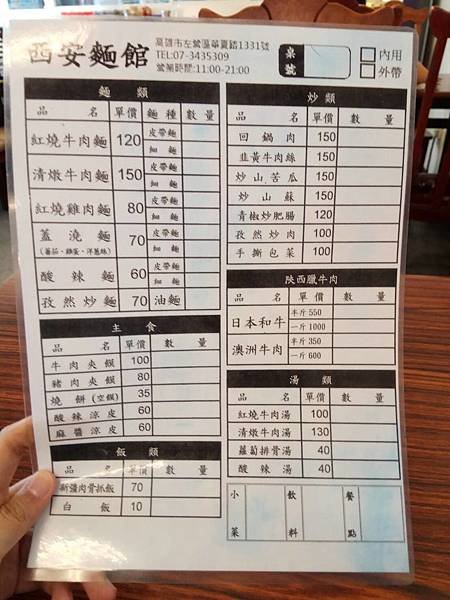 西安麵館
高雄市左營區華夏路1331號
TEL:07-3435309
營業時間:11:00-21:00
桌號
內用
外帶
麵 類
品 名 單價 麵種 數量
紅燒牛肉麵 120 皮帶麵 細麵
清燉牛肉麵 150 皮帶麵 細麵
紅燒雞肉麵 80 皮帶麵 細麵
蓋澆麵 70 皮帶麵 細麵
(蕃茄、雞蛋、洋蔥絲)
酸辣麵 60 皮帶麵 細麵
孜然炒麵 70 油麵
主 食
品 名 單價 數 量
牛肉夾饃 100
豬肉夾饃 80
燒餅(空饃) 35
酸辣涼皮 60
麻醬涼皮 60
飯 類
品 名 單價 數 量
新疆肉骨抓飯 70
白飯 10
炒 類
品 名 單價 數 量
回鍋肉 150
韭黃牛肉絲 150
炒山苦瓜 150
炒山蘇 150
青椒炒肥腸 120
孜然炒肉 100
手撕包菜 100
陝西臘牛肉
品 名 單價 數 量
日本和牛 半斤 550
一斤 1000
澳洲牛肉 半斤 350
一斤 600
湯 類
品 名 單價 數 量
紅燒牛肉湯 100
清燉牛肉湯 130
蘿蔔排骨湯 40
酸辣湯 40
小菜
飲料
餐點